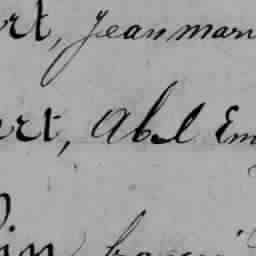 rt, Jean mar
ert, Abel Em
in